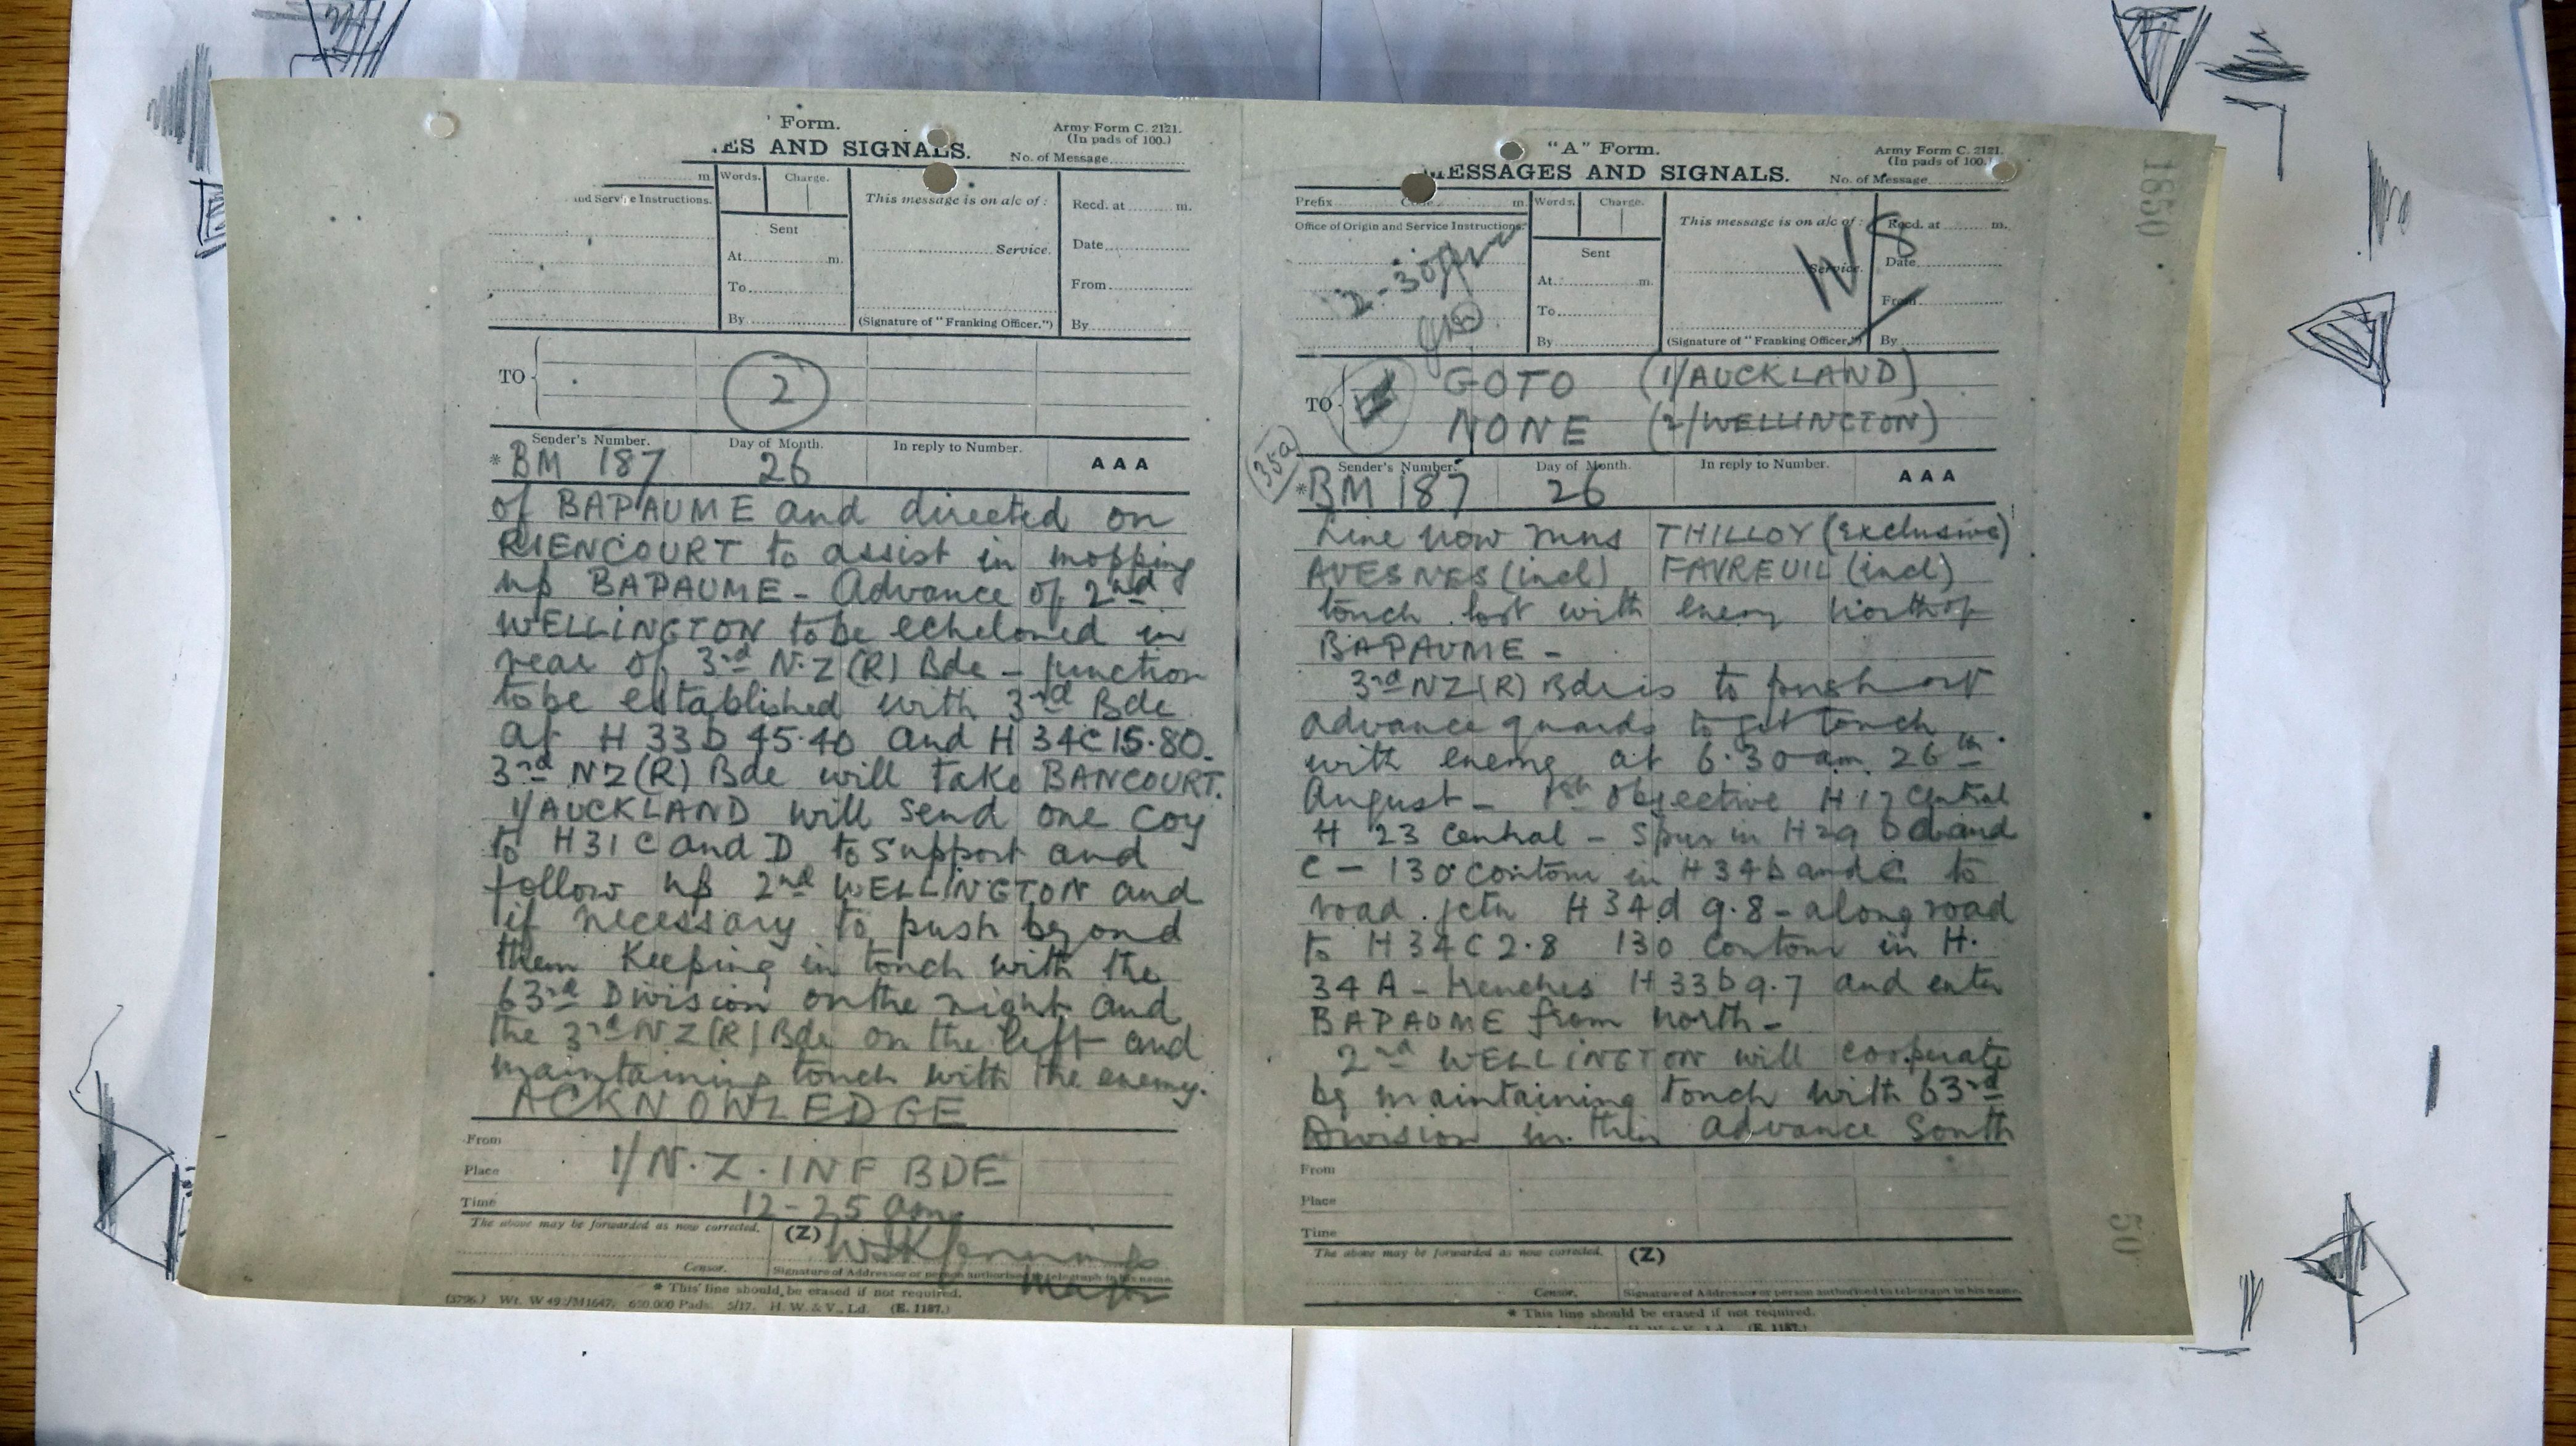 ' Form.
ES AND SIGNALS.
Army Form C. 2121.
(In pads of 100.)
No. of Message
m.
Words.
Charge.
and Service Instructions.
This message is on a/c of :
Recd. at m.
Sent
Date
Service.
At m.
From
To
By
(Signature of "Franking Officer.")
By
TO
2
Sender's Number.
Day of Month.
In reply to Number.
AAA
* BM 187
26
of BAPAUME and directed on
RIENCOURT to assist in mopping
up BAPAUME - Advance of 2nd
WELLINGTON to be echeloned in
rear of 3rd N.Z (R) Bde - junction
to be established with 3rd Bde
at H 33 b 45.40 and H 34 C 15.80.
3rd NZ (R) Bde will take BANCOURT.
1/AUCKLAND will send one Coy
to H31 C and D to support and
follow up 2nd WELLINGTON and
if necessary to push beyond
them Keeping in touch with the
63rd Division on the right and
the 3rd NZ (R) Bde on the left and
maintaining touch with the enemy.
ACKNOWLEDGE
From
Place
1/N.Z. INF BDE
Time
12-25 am
The above may be forwarded as now corrected.
(Z)
Censor.
Signature of Addressor or person authorised to telegraph in his name.
Major
* This line should be erased if not required.
650,000 Pads. 5/17. H. W. & V., Ld. (E. 1187.)
"A" Form.
MESSAGES AND SIGNALS.
Army Form C. 2121.
(In pads of 100.)
No. of Message
Prefix Code m.
Words.
Charge.
Office of Origin and Service Instructions.
This message is on a/c of :
Recd. at m.
Sent
Date
Service.
At m.
From
To
By
(Signature of "Franking Officer.")
By
2-30am
W8
TO
GOTO (1/AUCKLAND)
NONE (2/WELLINGTON)
35a
Sender's Number.
Day of Month.
In reply to Number.
AAA
* BM 187
26
Line now runs THILLOY (exclusive)
AVESNES (incl) FAVREUIL (incl)
touch lost with enemy North of
BAPAUME -
3rd NZ (R) Bde is to push out
advance guards to get touch
with enemy at 6.30 am 26th
August - 1st Objective H 17 Central
H 23 Central - Spur in H29 b and
C - 130 contour in H34b and C to
road jctn H 34 d 9.8 - along road
to H 34 C 2.8 130 contour in H.
34 A - trenches H 33 b 9.7 and enter
BAPAUME from North -
2nd WELLINGTON will cooperate
by maintaining touch with 63rd
Division in their advance South
From
Place
Time
The above may be forwarded as now corrected.
(Z)
Censor.
Signature of Addressor or person authorised to telegraph in his name.
* This line should be erased if not required.
(E. 1187.)
1850
50